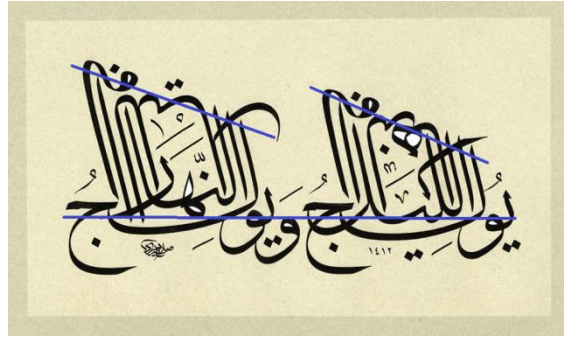 يُولجُ اليل في النهار ويُولجُ النّهار في اليل
١٤١٢